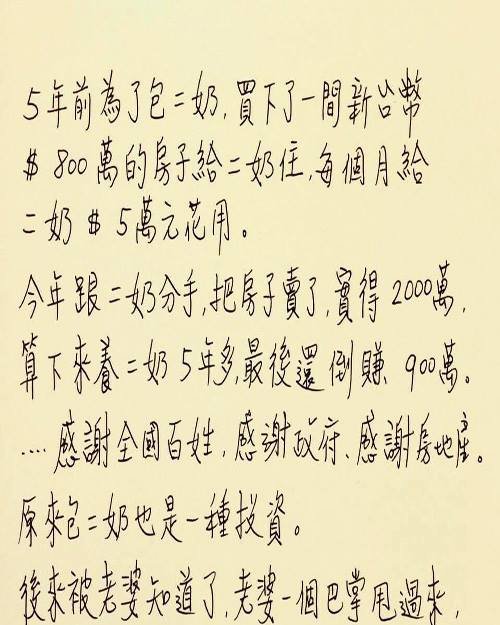 5年前為了包二奶,買下了一間新台幣
$ 800萬的房子給二奶住,每個月給
二奶 $ 5萬元花用。
今年跟二奶分手,把房子賣了,實得 2000萬,
算下來養二奶5年多,最後還倒賺 900萬。
....感謝全國百姓,感謝政府、感謝房地產。
原來包二奶也是一種投資。
後來被老婆知道了,老婆一個巴掌甩過來,